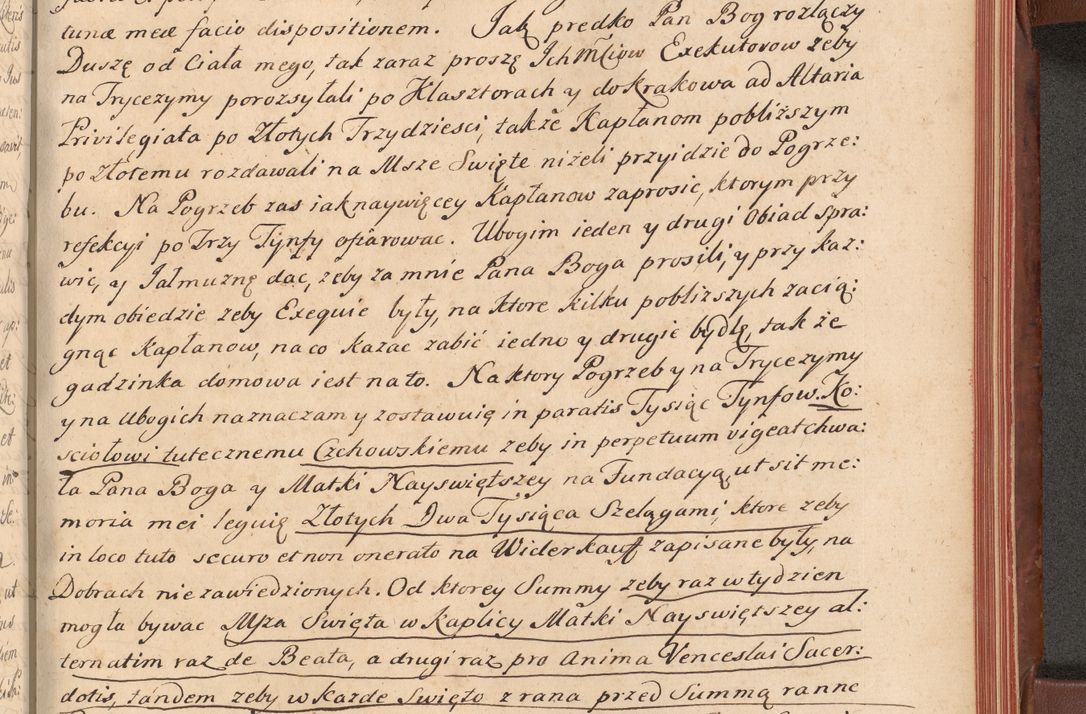 tunæ meæ facio dispositionem. Jak prędko Pan Bog rozłączy
Duszę od Ciała mego, tak zaraz proszę Jch Mściow Exekutorow żeby
na Trycezymy porozsyłali po Klasztorach y do Krakowa ad Altaria
Privilegiata po Złotych Trzydziesci, także Kapłanom pobliższym
po Złotemu rozdawali na Msze Swięte niżeli przyidzie do Pogrze:
bu. Na Pogrzeb zas iaknaywięcey Kapłanow zaprosic, ktorym przy
refekcyi po Trzy Tynfy ofiarowac. Ubogim ieden y drugi Obiad spra:
wic, y Jałmuznę dac, żeby za mnie Pana Boga prosili, y przy kaz:
dym obiedzie żeby Exequie były, na ktore kilku pobliższych zacią:
gnąc Kapłanow, na co kazac zabić iedno y drugie bydlę, także
gadzinka domowa iest na to. Na ktory Pogrzeb y na Trycezymy
y na Ubogich naznaczam y zostawuię in paratis Tysiąc Tynfow. Ko:
sciołowi tutecznemu Czchowskiemu żeby in perpetuum vigeat chwa:
ła Pana Boga y Matki Nayswiętszey na Fundacyą, ut sit me:
moria mei leguię Złotych Dwa Tysiąca Szelągami, ktore żeby
in loco tuto securo et non onerato na Widerkauff zapisane były, na
Dobrach niezawiedzionych. Od ktorey Summy żeby raz w tydzien
mogła bywac Msza Swięta w Kaplicy Matki Nayswiętszey al:
ternatim raz de Beata, a drugi raz pro Anima Venceslai Sacer:
dotis, tandem żeby w każde Swięto z rana przed Summą ranne